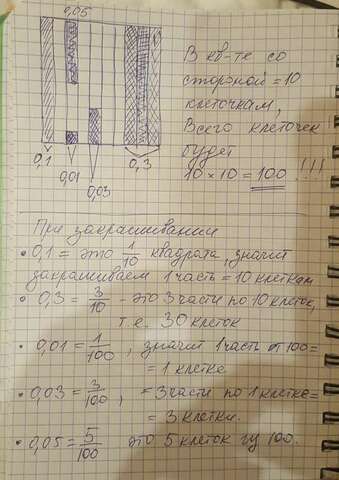 0,05
В кв-те со
стороной = 10
клеточкам,
Всего клеточек
будет
10 × 10 = 100 !!!
0,1
0,01
0,03
0,3
При закрашивании
• 0,1 = это 1/10 квадрата, значит
закрашиваем 1 часть = 10 клеткам
• 0,3 = 3/10 - это 3 части по 10 клеток,
т.е. 30 клеток
• 0,01 = 1/100, значит 1 часть от 100 =
= 1 клетке
• 0,03 = 3/100, = 3 части по 1 клетке =
= 3 клетки.
• 0,05 = 5/100 это 5 клеток из 100.